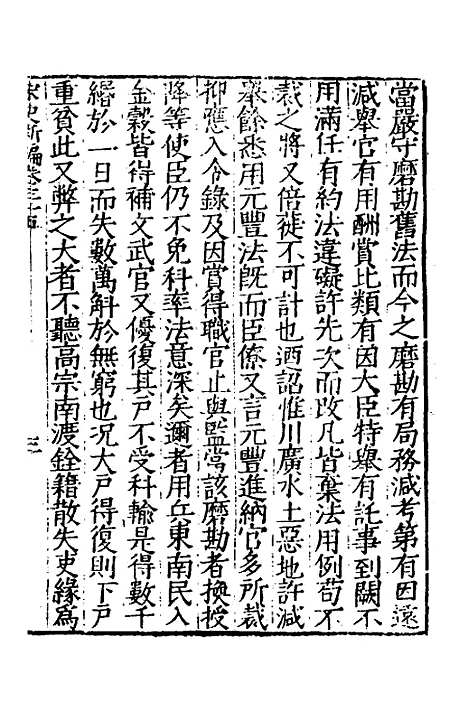 當嚴守磨勘舊法而今之磨勘有局務減考第有因遠
減舉官有用酬賞比類有因大臣特舉有託事到闕不
用滿任有約法違礙許先次而改凡皆棄法用例苟不
裁之將又倍徙不可計也迺詔惟川廣水土惡地許減
舉餘悉用元豐法旣而臣僚又言元豐進納官多所裁
抑應入令錄及因賞得職官止與監當該磨勘者換授
降等使臣仍不免科率法意深矣邇者用兵東南民入
金穀皆得補文武官又優復其戸不受科輸是得數千
緡於一日而失數萬斛於無窮也况大戸得復則下戸
重貧此又弊之大者不聽高宗南渡銓籍散失吏緣爲
宋史新編卷三十五
三